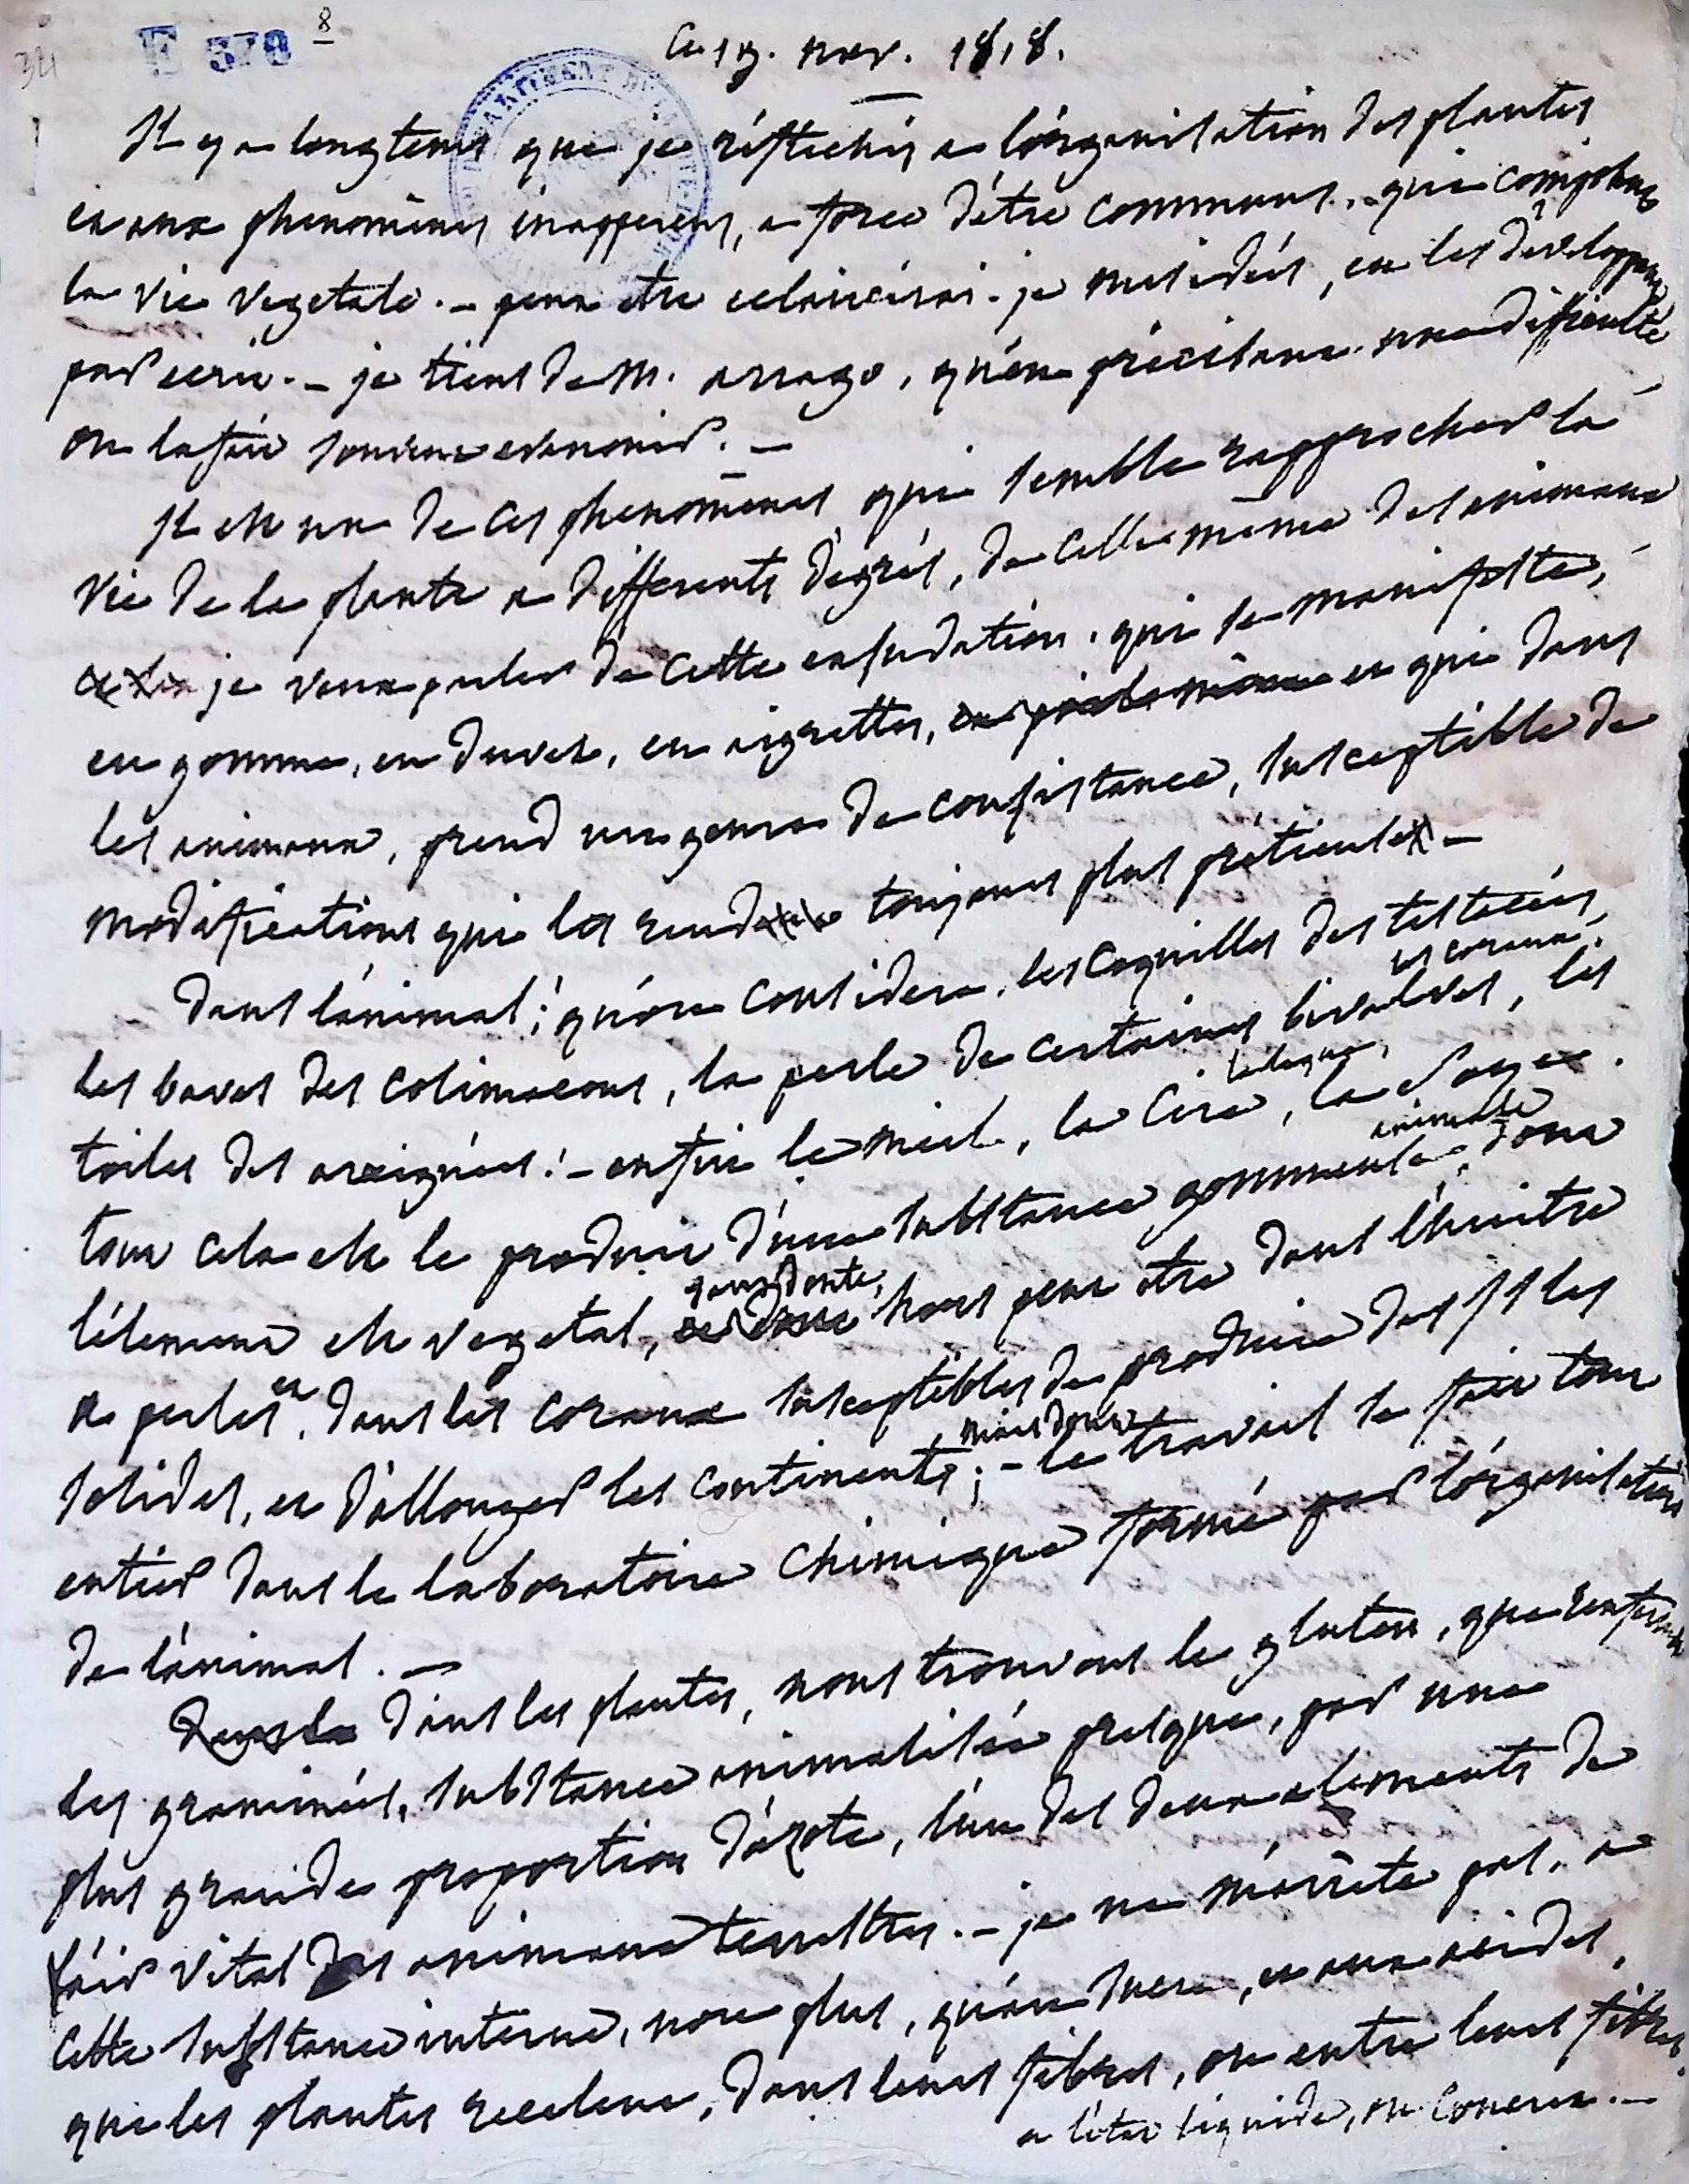 34
E 378 8
Ce 19. nov. 1818.
Il y a longtems que je réfléchis a l'organisation des plantes
et aux phenomènes inapperçus, a force d'être communs, qui composent
la vie vegetale. – peut etre eclaircirai-je mes idées, en les développant
par ecrit. – je tiens de M. arrago, qu'en précisant une difficulté
on la fait souvent evanouir. –
Il est un de ces phenomènes, qui semble rapprocher la
vie de la plante a differents dégrés, de celle même des animaux
je veux parler de cette exsudation, qui se manifeste,
en gomme, en duvet, en aigrettes, et qui dans
les animaux, prend un genre de consistance, susceptible de
modifications qui la rend toujours plus
dans l'animal; qu'on considere, les coquilles des testacées,
les coraux,
les baves des colimaçons, la perle de certaines bivalves, les
toiles des araignées! – enfin le miel, la cire, la laque, la soye.
tout cela est le produit d'une substance gommeuse, animale dont
l'élément est vegetal, sans doute, hors peut etre dans l'huitre
a perles, et dans les coraux susceptibles de produire des isles
solides, et d'allonger les continents; – mais dont le travail se fait tout
entier dans le laboratoire chimique formé par l'organisation
de l'animal. –
dans les plantes, nous trouvons le gluten, que renferment
les graminées, substance animalisée presque, par une
plus grande proportion d'azote, l'un des deux elements de
l'air vital des animaux terrestres. – je ne m'arrête pas, a
cette substance interne, non plus, qu'au sucre, et aux acides,
que les plantes recelent, dans leurs fibres, ou entre leurs fibres,
a l'état liquide, ou concret. –